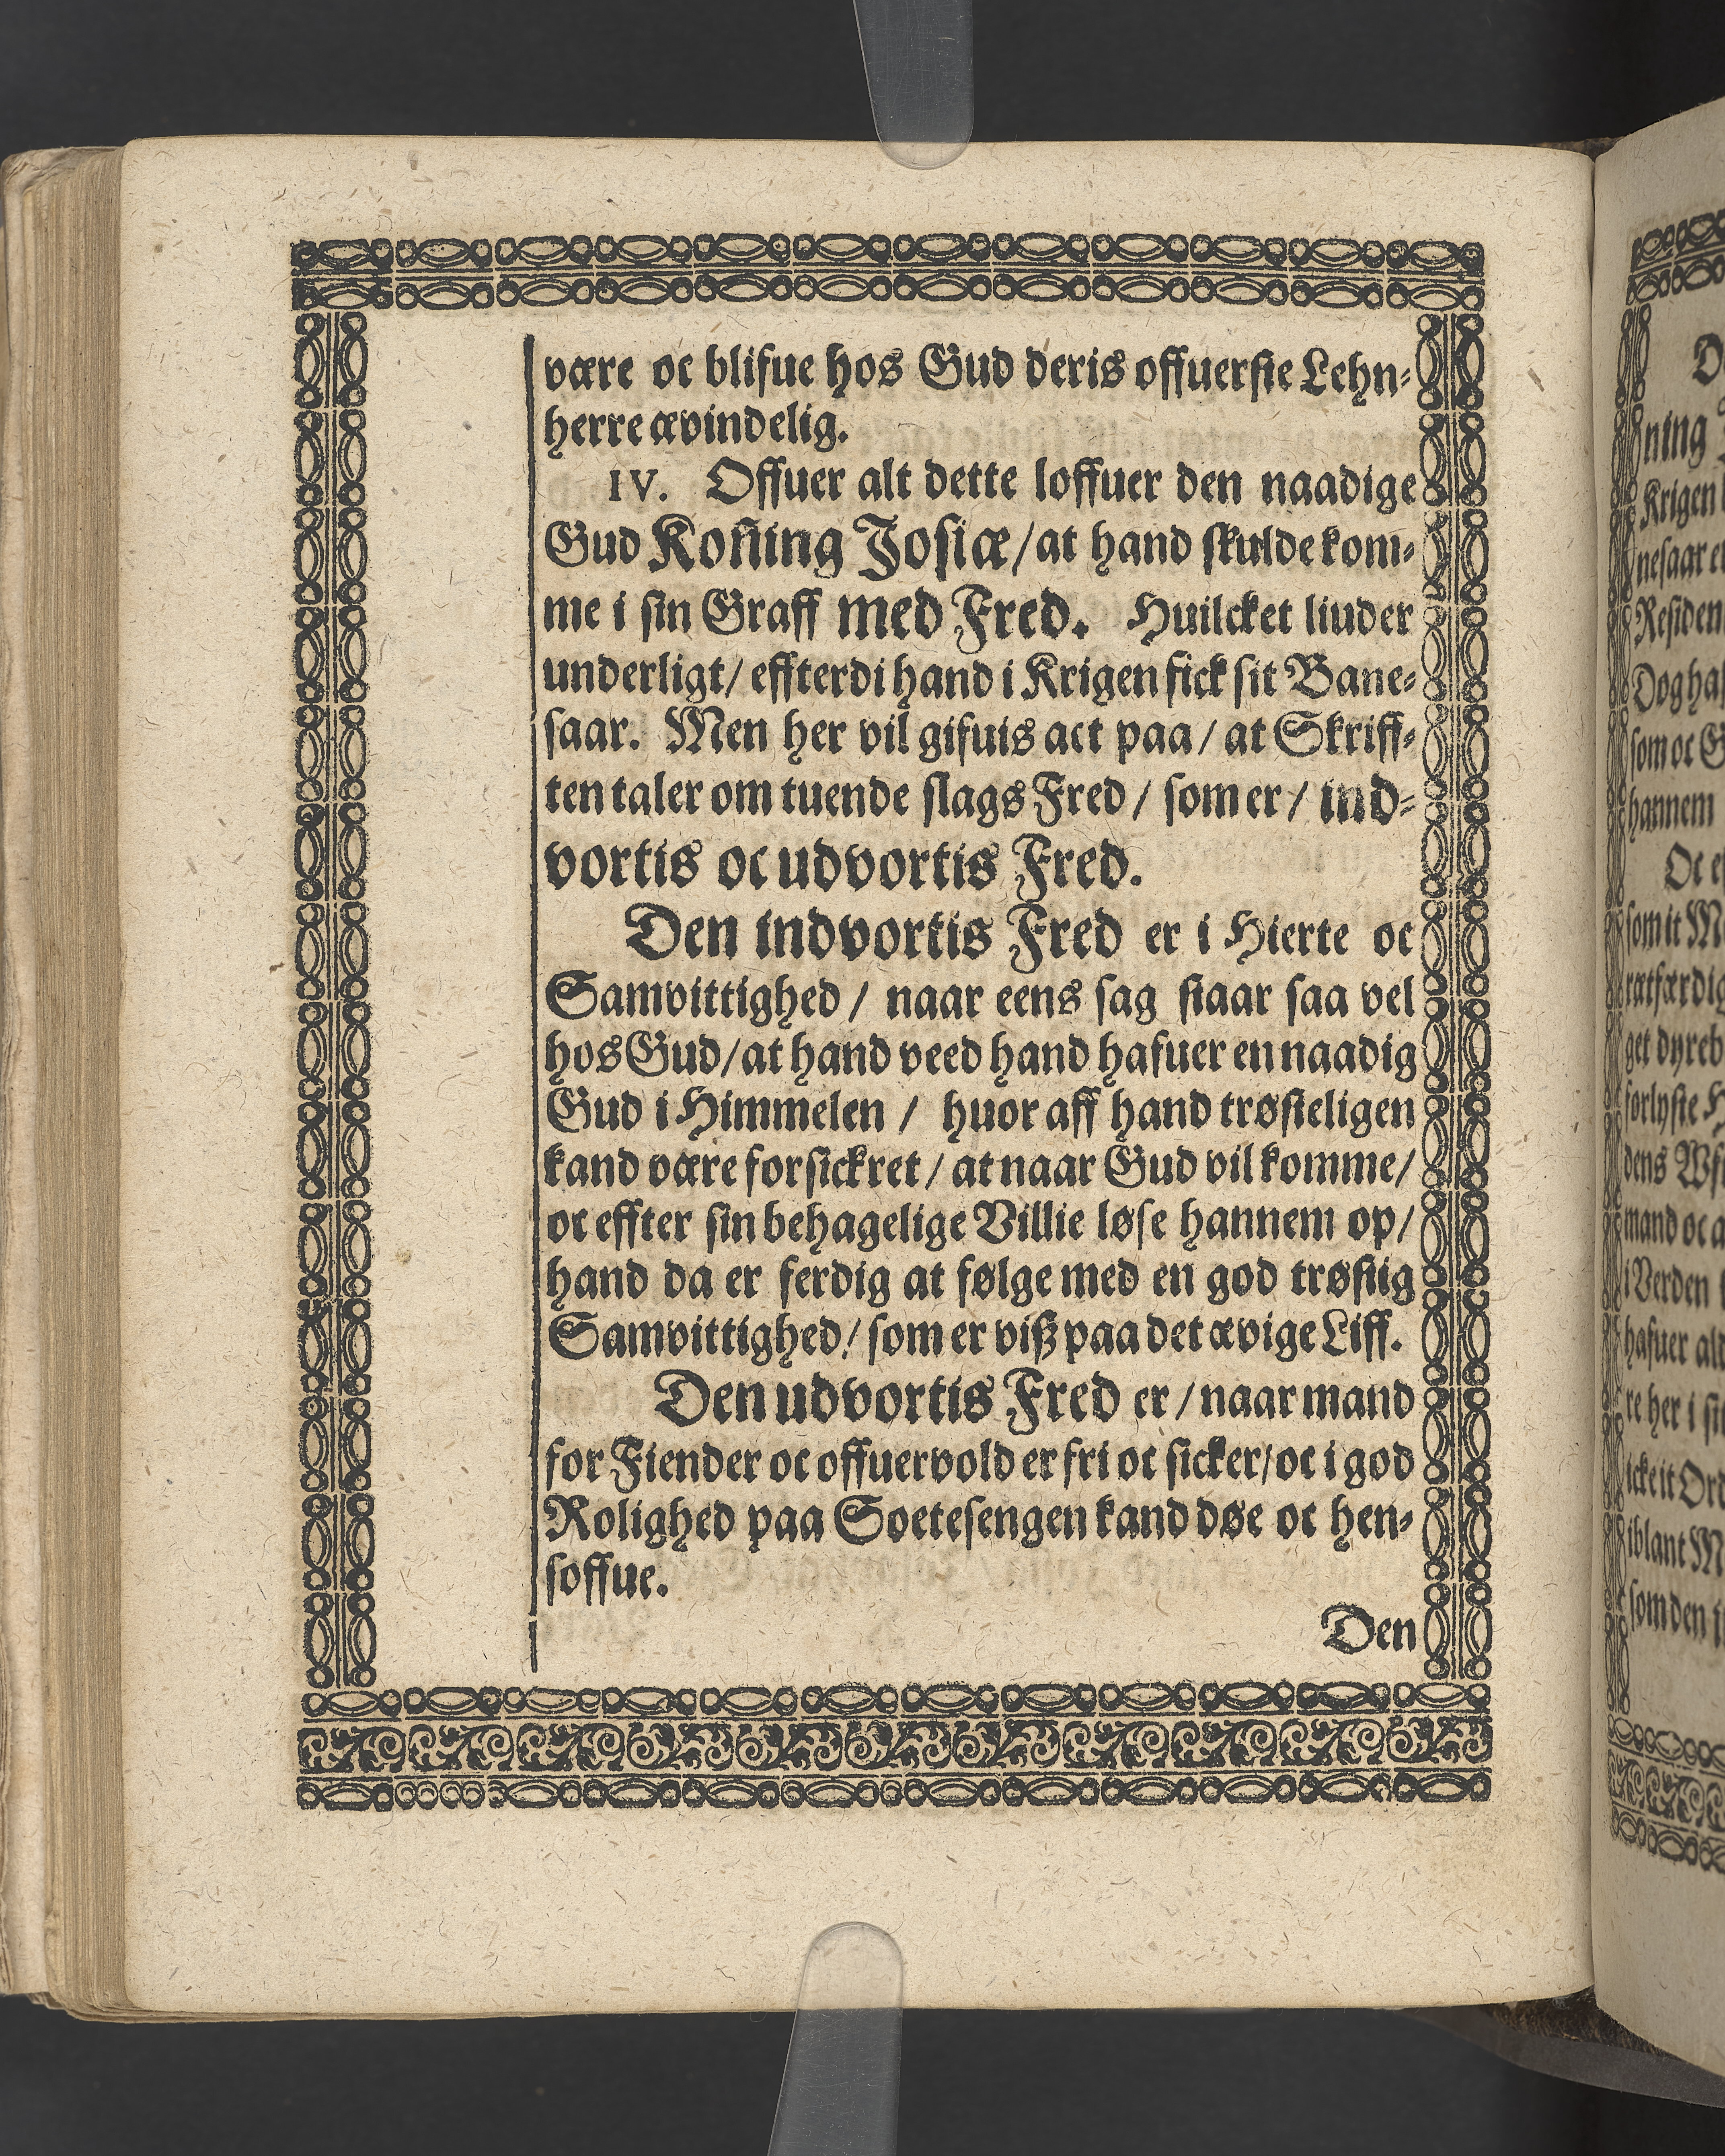 være oc blifue hos Gud deris offuerste Lehn-
herre ævindelig.
IV. Offuer alt dette loffuer den naadige
Gud Koning Josiæ/at hand skulde kom-
me i sin Graff med Fred. Huilcket liuder
underligt/ effterdi hand i Krigen fick sit Bane-
saar. Men her vil gifuis act paa/ at Skriff-
ten taler om tuende slags Fred/ som er/ ind-
vortis oc udvortis Fred.
Den indvortis Fred er i Hierte oc
Samvittighed/ naar eens sag staar saa vel
hos Gud/at hand veed hand hafuer en naadig
Gud i Himmelen/ huor aff hand trøsteligen
kand være forsickret/ at naar Gud vil komme/
oc effter sin behagelige Villie løse hannem op/
hand da er ferdig at følge med en god trøstig
Samvittighed/ som er viß paa det ævige Liff.
Den udvortis Fred er/naar mand
for Fiender oc offuervold er fri oc sicker/oc i god
Rolighed paa Soetesengen kand døe oc hen-
soffue.
Den
ning
Krigen
nesaar
Residen
Dog
som oc
hannem
Oc
som it
get
dens
mand oc
i Verden
hafuer
re her i
iblant
som den